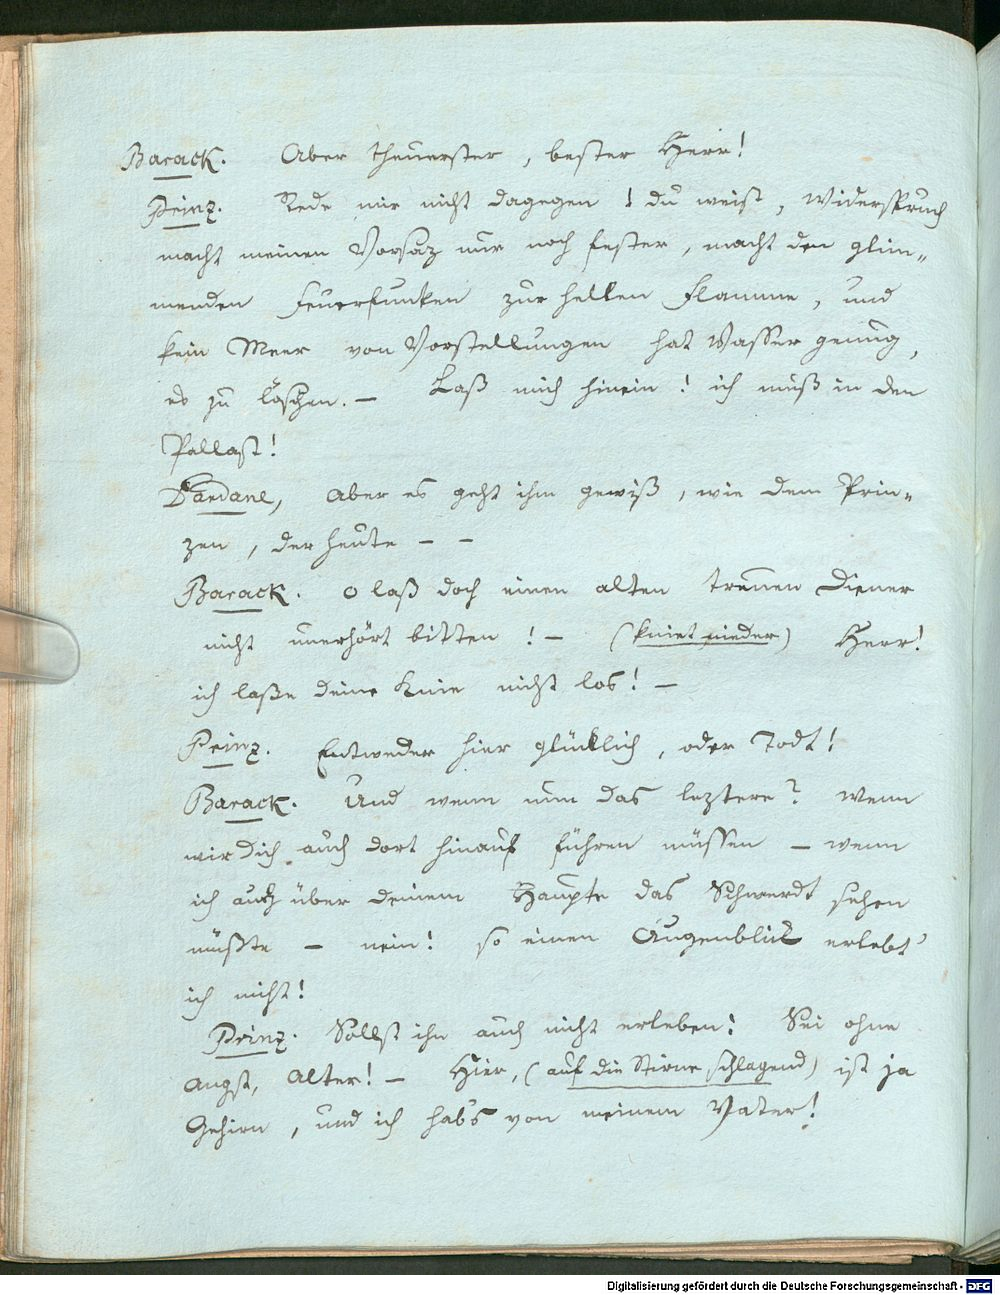 Barack. Aber theuerster, bester Herr!
Prinz. Rede mir nicht dagegen! du weist, Widerspruch
macht meinen Vorsaz nur noch fester, macht den glim-
menden Feuerfunken zur hellen Flamme, und
kein Meer von Vorstellungen hat Wasser genug,
es zu löschen. — Laß mich hinein! ich muß in den
Pallast!
Dardane, Aber es geht ihm gewiß, wie dem Prin-
zen, der heute — —
Barack. O laß doch einen alten treuen Diener
nicht unerhört bitten! — (kniet nieder) Herr!
ich laße deine Knie nicht los! —
Prinz. Entweder hier glücklich, oder Todt!
Barack. Und wenn nun das leztere? wenn
wir dich auch dort hinauf führen müssen — wenn
ich auch über deinem Haupte das Schwerdt sehen
müßte — nein! so einen Augenblick erlebt'
ich nicht!
Prinz. Sollst ihn auch nicht erleben! Sei ohne
Angst, Alter! — Hier, (auf die Stirne schlagend) ist ja
Gehirn, und ich hab's von meinem Vater!
Digitalisierung gefördert durch die Deutsche Forschungsgemeinschaft - DFG